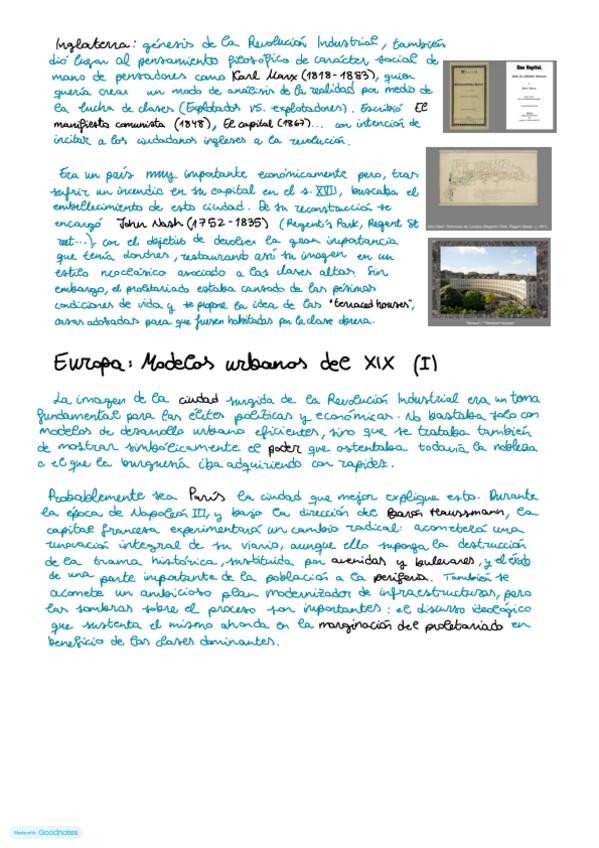 Inglaterra: génesis de la Revolución Industrial, también
dió lugar al pensamiento filosófico de carácter social de
mano de pensadores como Karl Marx (1818-1883), quien
quería crear un modo de análisis de la realidad por medio de
la lucha de clases (Explotados vs. explotadores). Escribió El
manifiesto comunista (1848), El capital (1867)... con intención de
incitar a los ciudadanos ingleses a la revolución.
Das Kapital.
Era un país muy importante económicamente pero, tras
sufrir un incendio en su capital en el s. XVII, buscaba el
embellecimiento de esta ciudad. De su reconstrucción se
encargó John Nash (1752-1835) (Regent's Park, Regent St
reet...), con el objetivo de devolver la gran importancia
que tenía Londres, restaurando así su imagen en un
estilo neoclásico asociado a las clases altas. Sin
embargo, el proletariado estaba cansado de las pésimas
condiciones de vida y se propone la idea de las "terraced houses",
casas adosadas para que fuesen habitadas por la clase obrera.
John Nash: Reformas de Londres (Regent's Park, Regent Street...)
"Terrace" / "Terraced Houses"
Europa: Modelos urbanos del XIX (I)
La imagen de la ciudad surgida de la Revolución Industrial era un tema
fundamental para las élites políticas y económicas. No bastaba solo con
modelos de desarrollo urbano eficientes, sino que se trataba también
de mostrar simbólicamente el poder que ostentaba todavía la nobleza
o el que la burguería iba adquiriendo con rapidez.
Probablemente sea París la ciudad que mejor explique esto. Durante
la época de Napoleón III, y bajo la dirección del Barón Haussmann, la
capital francesa experimentará un cambio radical: acometerá una
renovación integral de su viario, aunque ello suponga la destrucción
de la trama histórica, sustituida por avenidas y bulevares, y el éxodo
de una parte importante de la población a la periferia. También se
acomete un ambicioso plan modernizador de infraestructuras, pero
las sombras sobre el proceso son importantes: el discurso ideológico
que sustenta el mismo ahonda en la marginación del proletariado en
beneficio de las clases dominantes.
Made with Goodnotes